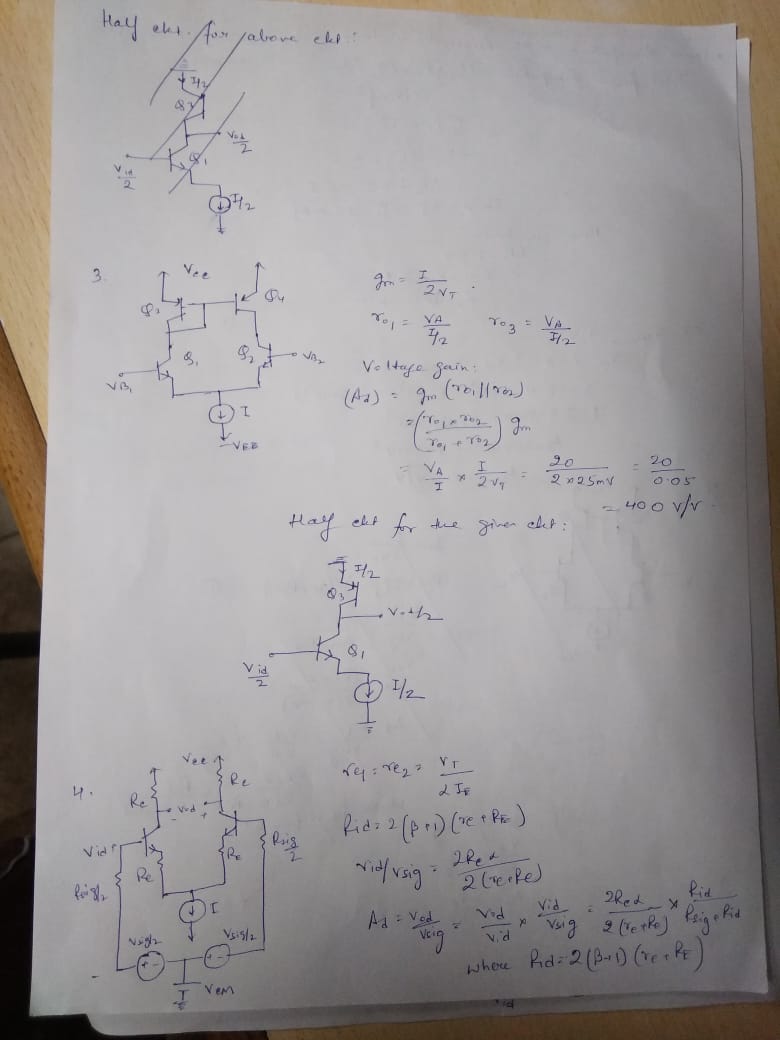 Half ckt. for above ckt :
I/2
Q3
Vod/2
Vid/2
Q1
I/2
3.
Vcc
Q3
Q4
Q1
Q2
VB1
VB2
I
-VEE
gm = I/2VT
ro1 = VA/(I/2)    ro3 = VA/(I/2)
Voltage gain :
(Ad) = gm (ro1||ro2)
= (ro1 × ro2 / ro1 + ro2) gm
= VA/I × I/2VT = 20/2×25mV = 20/0.05
= 400 V/V
Half ckt for the given ckt :
I/2
Q3
Vod/2
Q1
Vid/2
I/2
4.
Vcc
Rc
Rc
- Vod +
Vid+
Rsig/2
Rsig/2
Re
RE
I
Vsig/2
Vsig/2
+ -
+ -
VCM
re1 = re2 = VT/2IE
Rid = 2(β+1)(re + RE)
Vid/Vsig = 2Rcα/2(re+Re)
Ad = Vod/Vsig = Vod/Vid × Vid/Vsig = 2Rcα/2(re+Re) × Rid/Rsig+Rid
where Rid = 2(β+1)(re + RE)